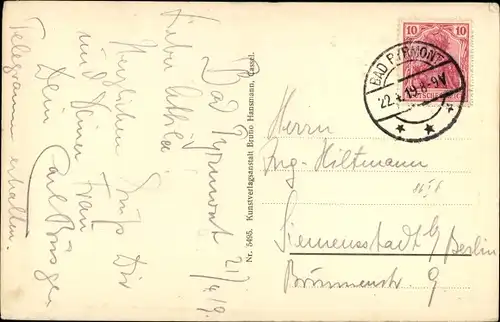 Bad Pyrmont 21/4 19.
Lieber
Herzlichen Gruss Dir
und Deiner Frau
Dein
Telegramm erhalten.
Nr. 5495. Kunstverlagsanstalt Bruno Hansmann, Cassel.
10 10
BAD PYRMONT
22.4.19. 8-9V
Herrn
Ing. Hiltmann
Siemensstadt b/Berlin
Brunnenstr. 9